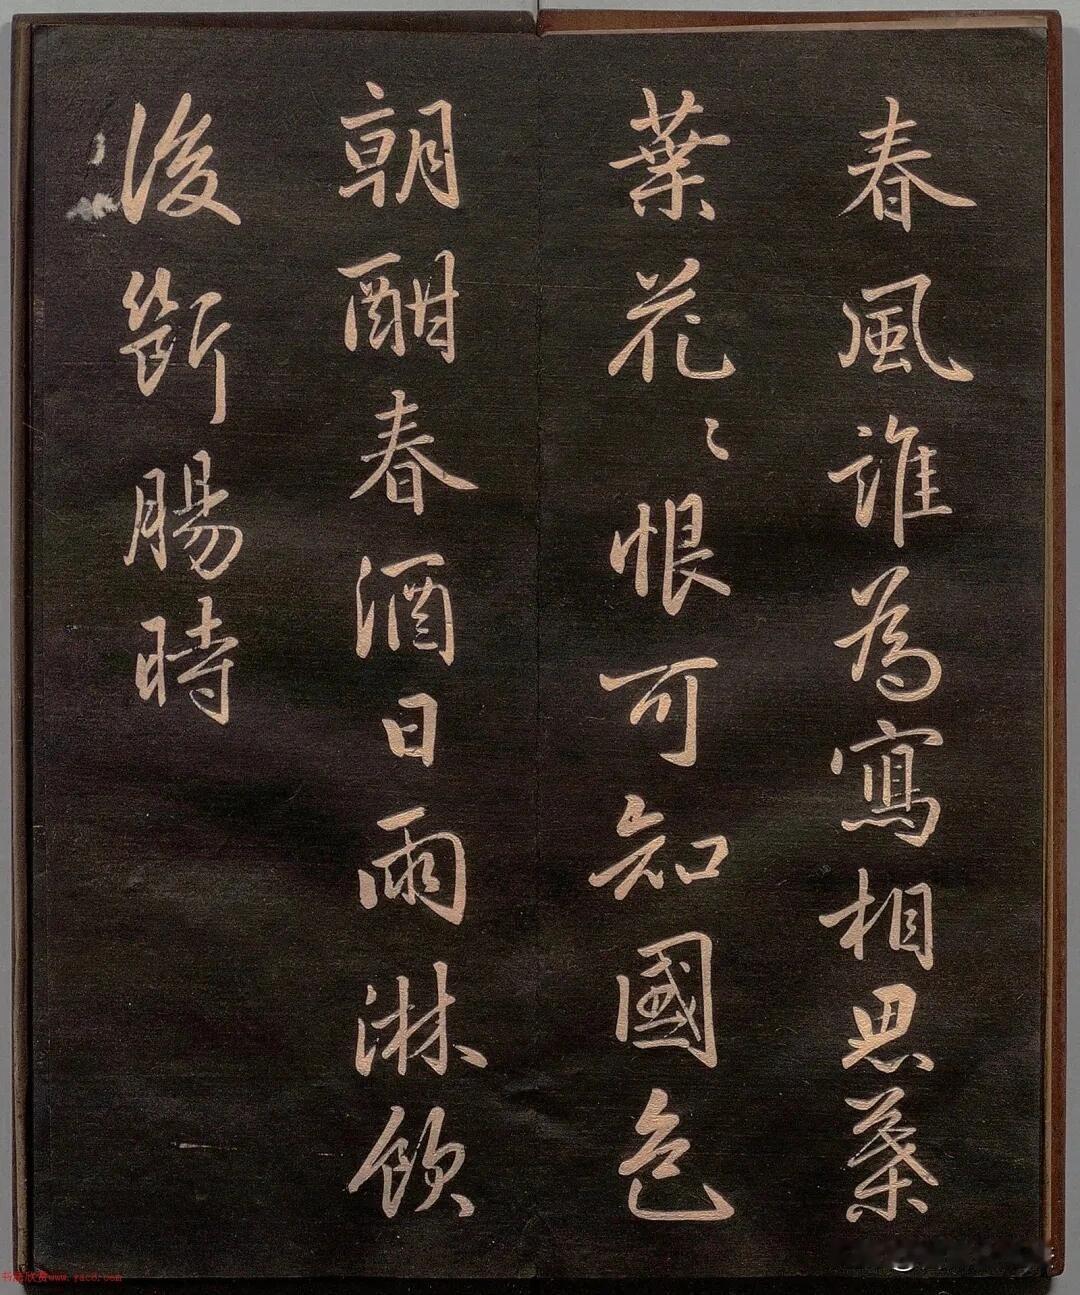 春風誰為寫相思葉
葉花〻恨可知國色
朝酣春酒日雨淋鈴
後斷腸時
书法欣赏www.yac8.com